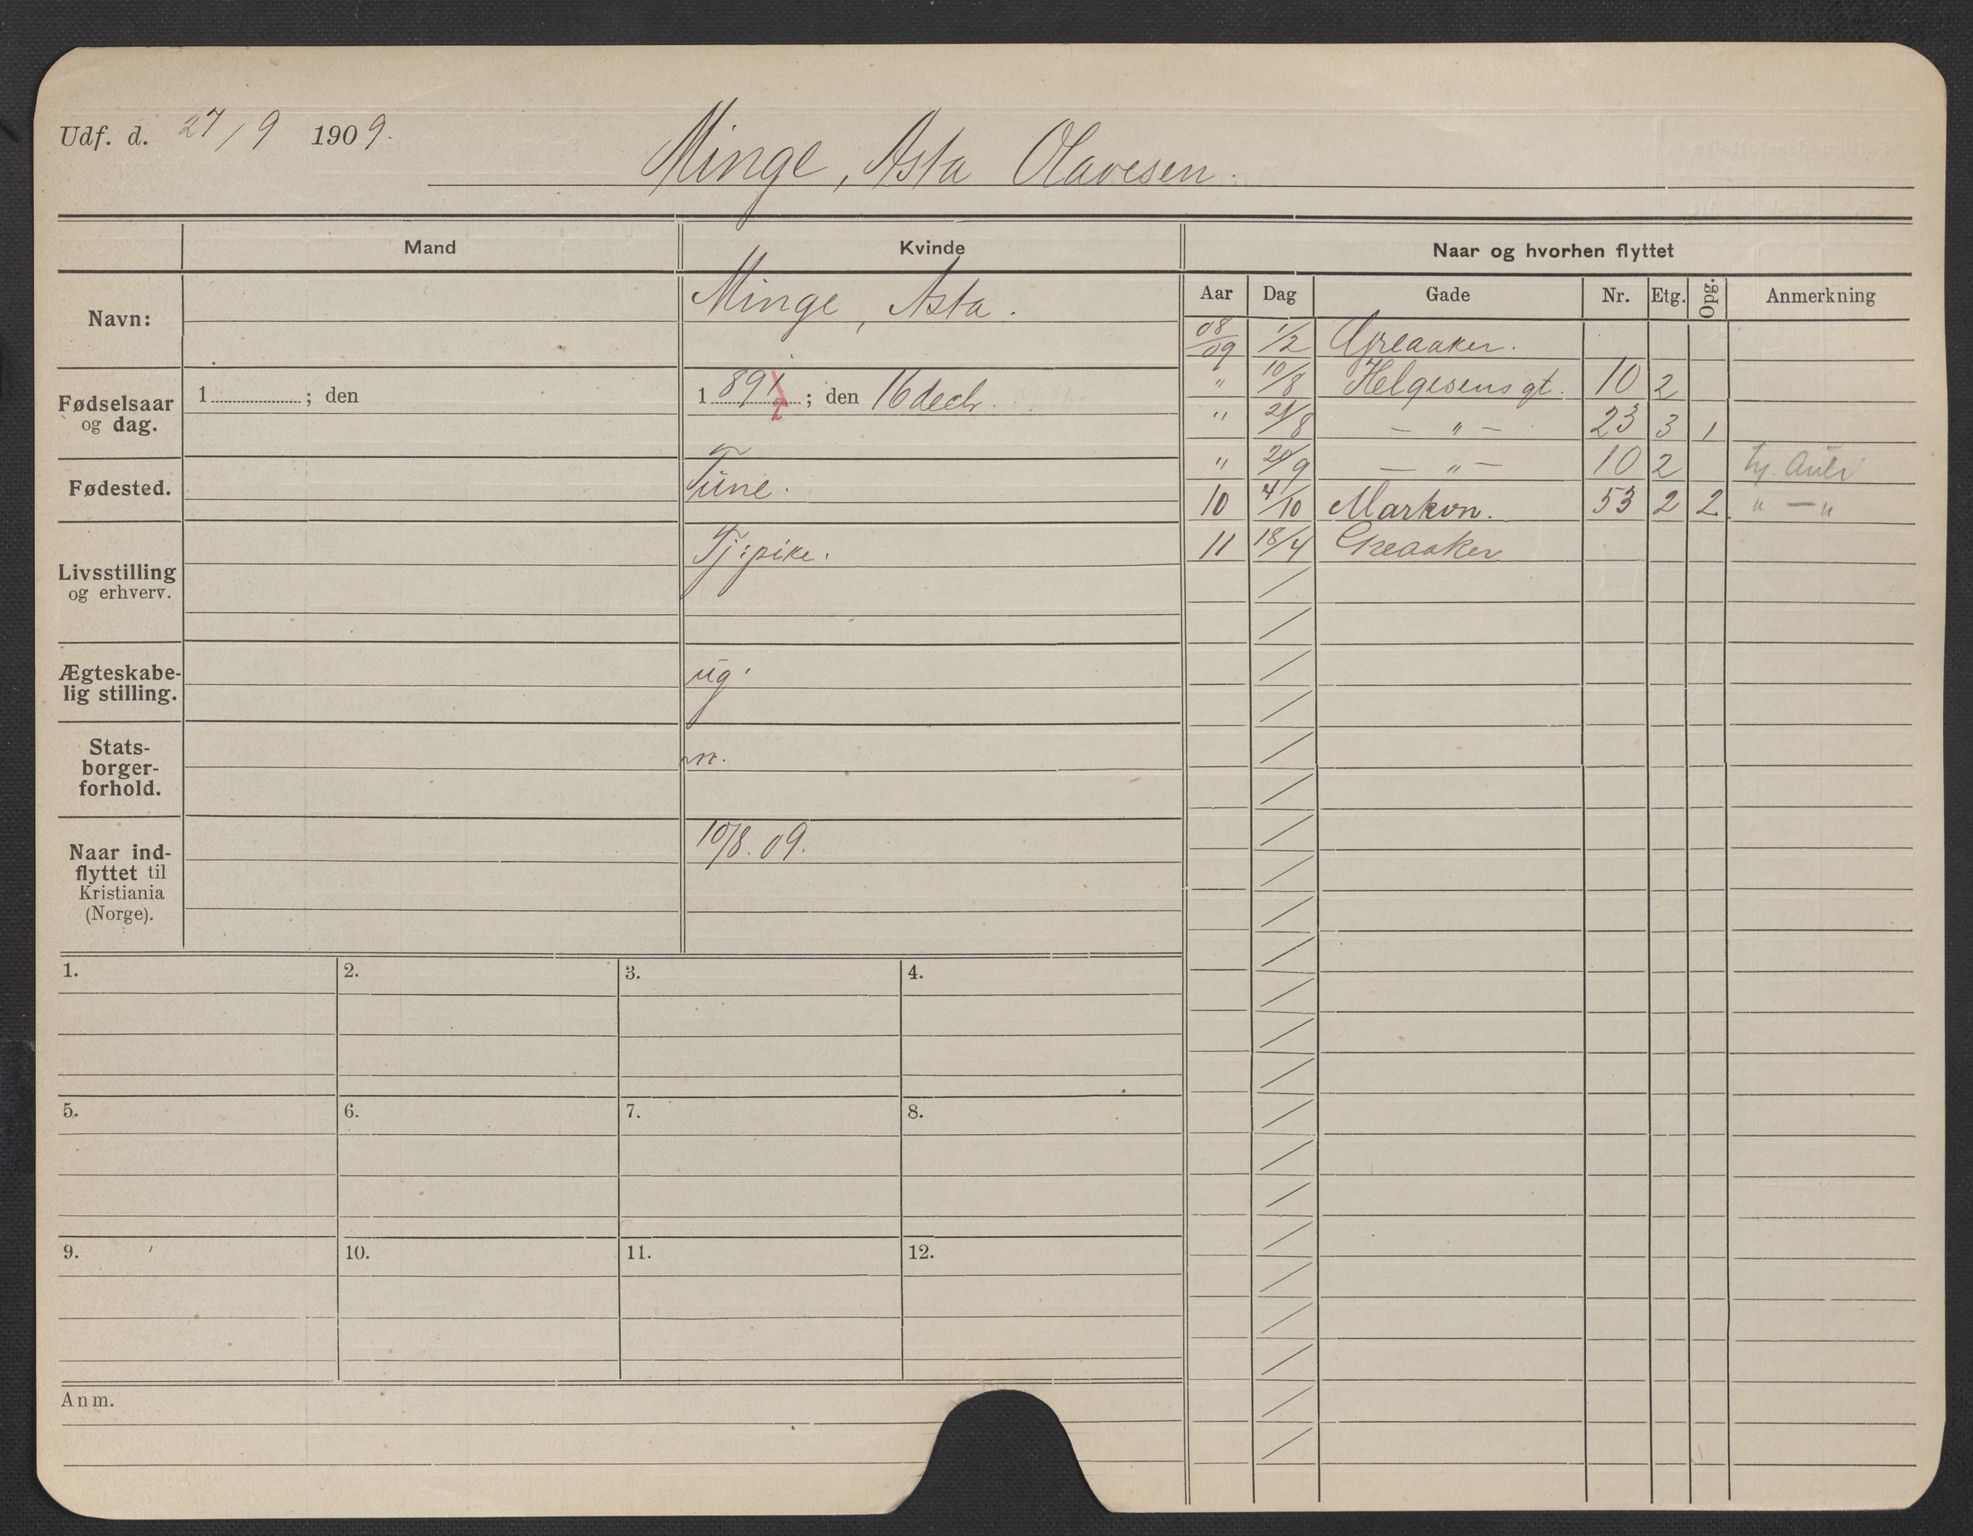 Udf. d. 27/9 1909.
Minge, Asta Olavesen.
Mand
Kvinde
Naar og hvorhen flyttet
Navn:
Minge, Asta.
Fødselsaar og dag.
1 ; den
1 891 2 ; den 16 decb.
Fødested.
Tune.
Livsstilling og erhverv.
Tj:pike.
Ægteskabe-
lig stilling.
ug.
Stats-
borger-
forhold.
n.
Naar ind-
flyttet til
Kristiania
(Norge).
10/8. 09.
Aar Dag Gade Nr. Etg. Opg. Anmerkning
08/09 1/2 Greaaker.
" 10/8 Helgesens gt. 10 2
" 21/8 — " — 23 3 1
" 20/9 — " — 10 2
10 4/10 Markvn. 53 2 2 " — "
11 18/4 Greaaker
1. 2. 3. 4.
5. 6. 7. 8.
9. 10. 11. 12.
Anm.